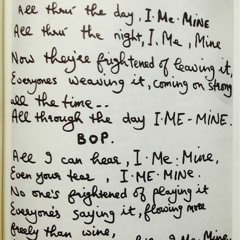 All thru' the day, I·Me·MINE
All thru' the night, I, Me, Mine
Now they're frightened of leaving it,
Everyones weaving it, coming on strong
all the time--
All through the day I·ME-MINE.
BOP.
All I can hear, I·Me:Mine,
Even your tear, I·ME·MINE.
No one's frightened of playing it
Everyone's saying it, flowing more
freely than wine,
Me Mine